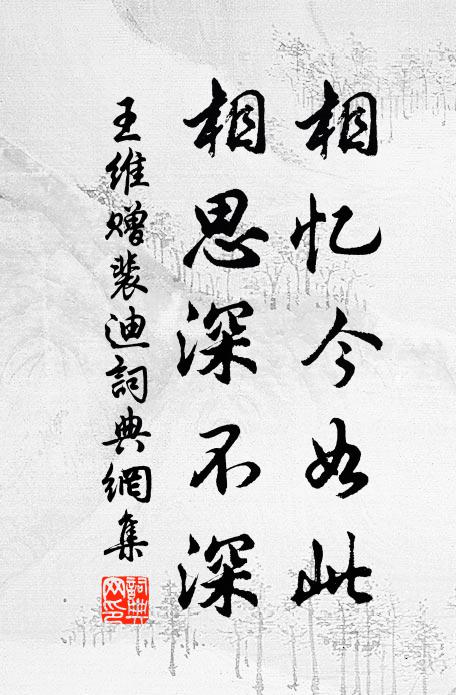 相忆今如此
相思深不深
王維赠裴迪詞典網集
詞典網印